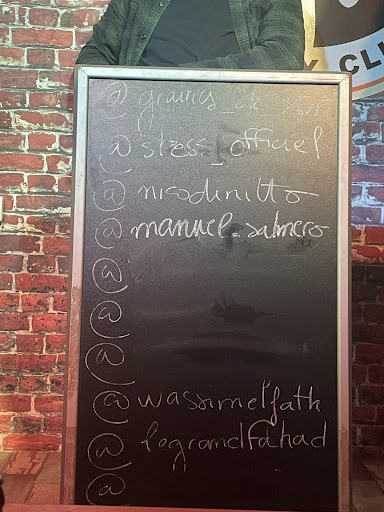 Y CLU
@
@stess_officiel
@nicodinitto
@manuel.salmero
@
@
@
@wassimelfath
@legrandfahad
@